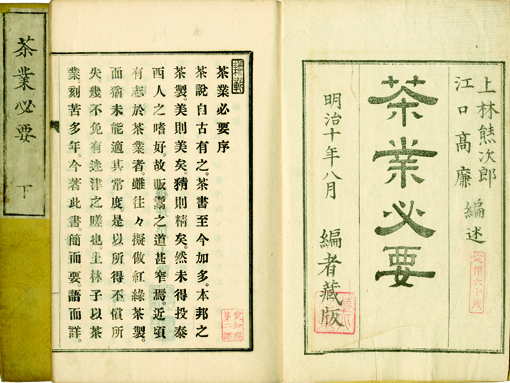 上林熊次郎
江口高廉 編述
茶業必要
明治十年八月 編者藏版
茶業必要序
茶說自古有之。茶書至今加多。本邦之
茶製。美則美矣。精則精矣。然未得投泰
西人之嗜好故販鬻之道甚窄焉。近頃
有志於茶業者。雖往々擬倣紅綠茶製。
而猶未能適其常度。是以所得不償所
失。幾不免有迷津之嗟也上林子以茶
業。刻苦多年。今著此書。簡而要。語而詳。
茶業必要 下